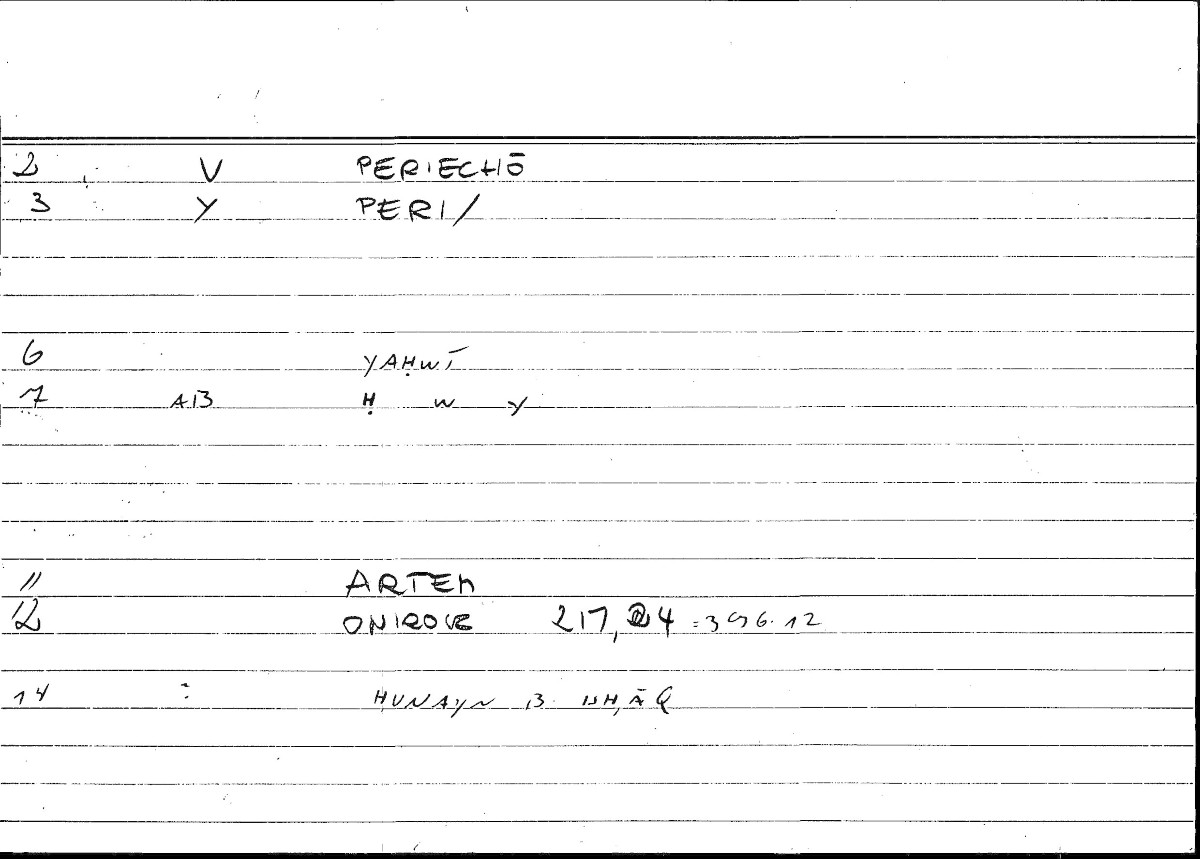 2 V PERIECHŌ
3 Y PERI/
6 YAḤWĪ
7 AB Ḥ W Y
11 ARTEM
12 ONIROCR 217,24 = 396.12
14 : ḤUNAYN B. ISḤĀQ